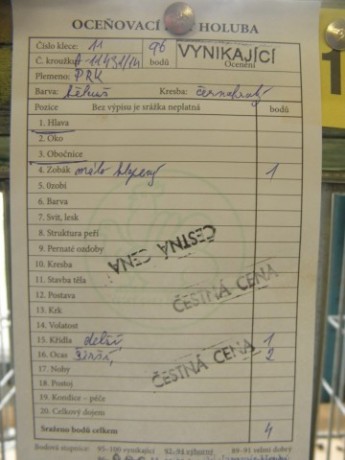 OCEŇOVACÍ HOLUBA
Číslo klece: 11 96 VYNIKAJÍCÍ
Č. kroužku: bodů Ocenění
Plemeno: PRK
Barva: Kresba:
Pozice Bez výpisu je srážka neplatná bodů
1. Hlava
2. Oko
3. Obočnice
4. Zobák málo 1
5. Ozobí
6. Barva
7. Svit, lesk
8. Struktura peří
9. Pernaté ozdoby ČESTNÁ CENA
10. Kresba
11. Stavba těla
12. Postava ČESTNÁ CENA
13. Krk
14. Volatost
15. Křídla delší 1
16. Ocas širší 2
17. Nohy ČESTNÁ CENA
18. Postoj
19. Kondice – péče
20. Celkový dojem
Sraženo bodů celkem 4
Bodová stupnice: 95–100 vynikající 92–94 výborný 89–91 velmi dobrý